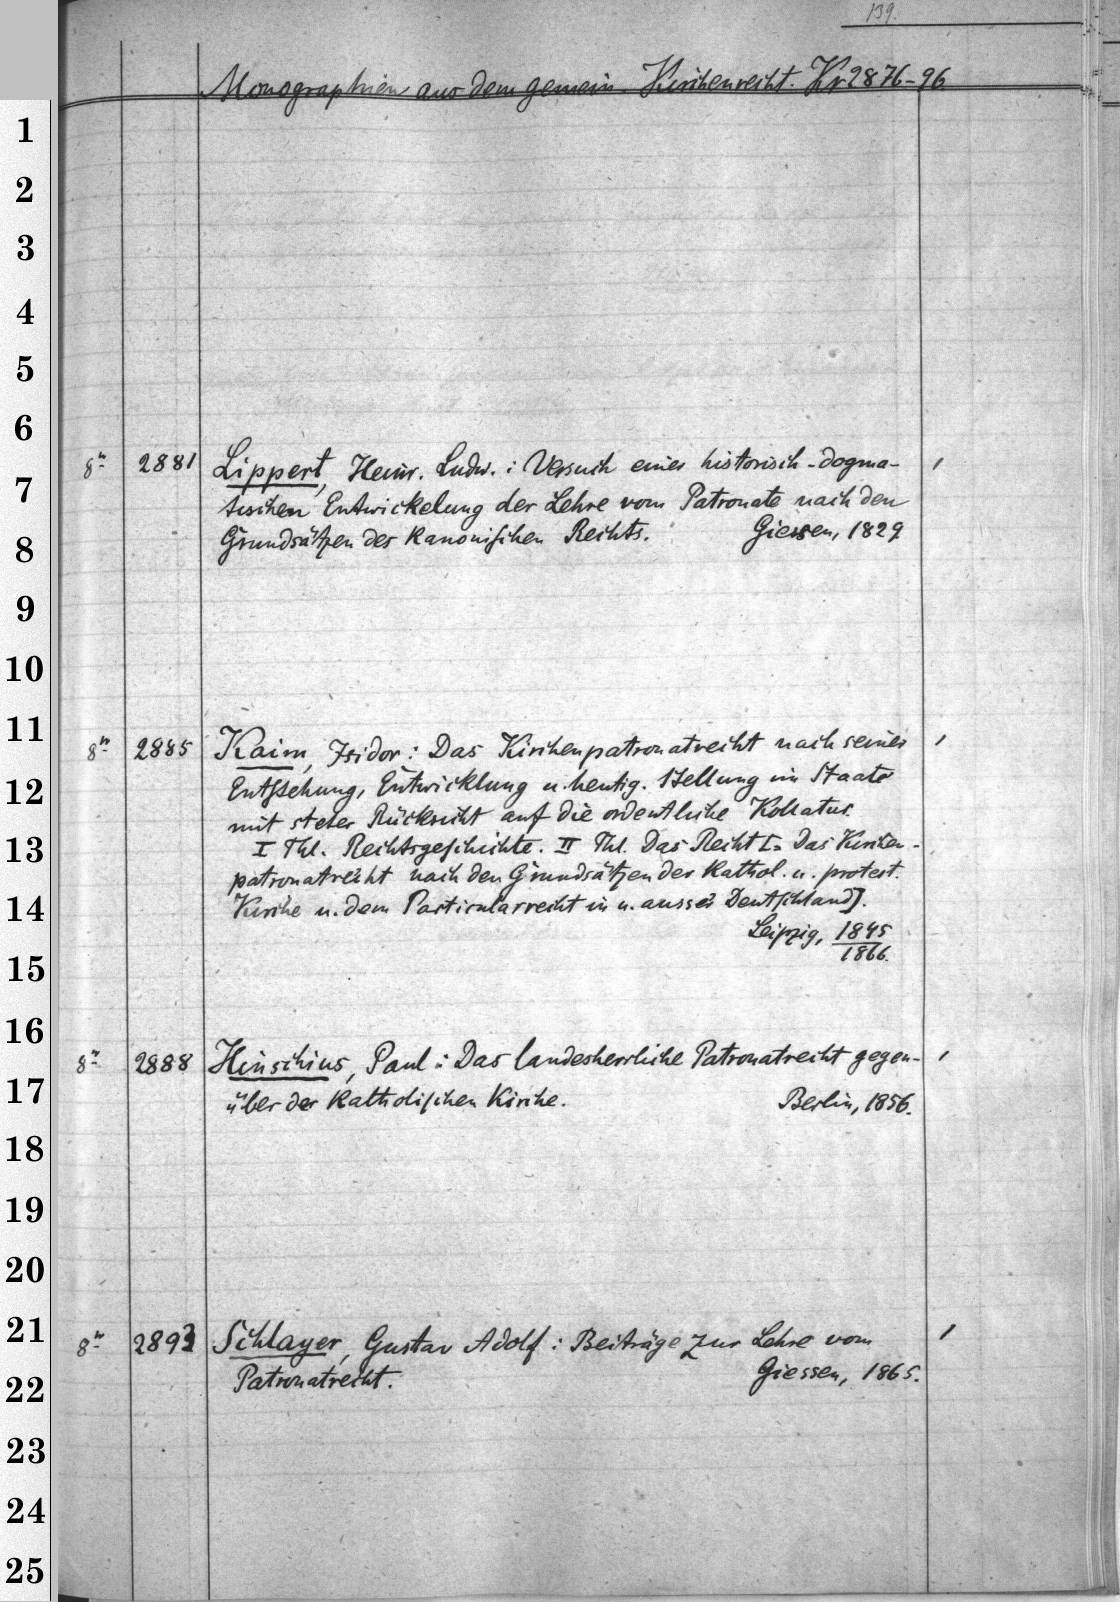 139.
Monographien aus dem gemein. Kirchenrecht. Kr 2876-96
1
2
3
4
5
6
8° 2881 Lippert, Heinr. Ludw.: Versuch einer historisch-dogma- 1
7
tischen Entwickelung der Lehre vom Patronate nach den
8
Grundsätzen des kanonischen Rechts. Giessen, 1829
9
10
11
8° 2885 Kaim, Isidor: Das Kirchenpatronatrecht nach seiner 1
12
Entstehung, Entwicklung u. heutig. Stellung im Staate
mit steter Rücksicht auf die ordentliche Kollatur.
13
I Thl. Rechtsgeschichte. II Thl. Das Recht I. Das Kirchen-
patronatrecht nach den Grundsätzen der kathol. u. protest.
14
Kirche u. dem Particularrecht in u. ausser Deutschland].
Leipzig, 1845
1866.
15
16
8° 2888 Hinschius, Paul: Das landesherrliche Patronatrecht gegen- 1
17
über der katholischen Kirche. Berlin, 1856.
18
19
20
21
8° 2893 Schlayer, Gustav Adolf: Beiträge zur Lehre vom 1
22
Patronatrecht. Giessen, 1865.
23
24
25